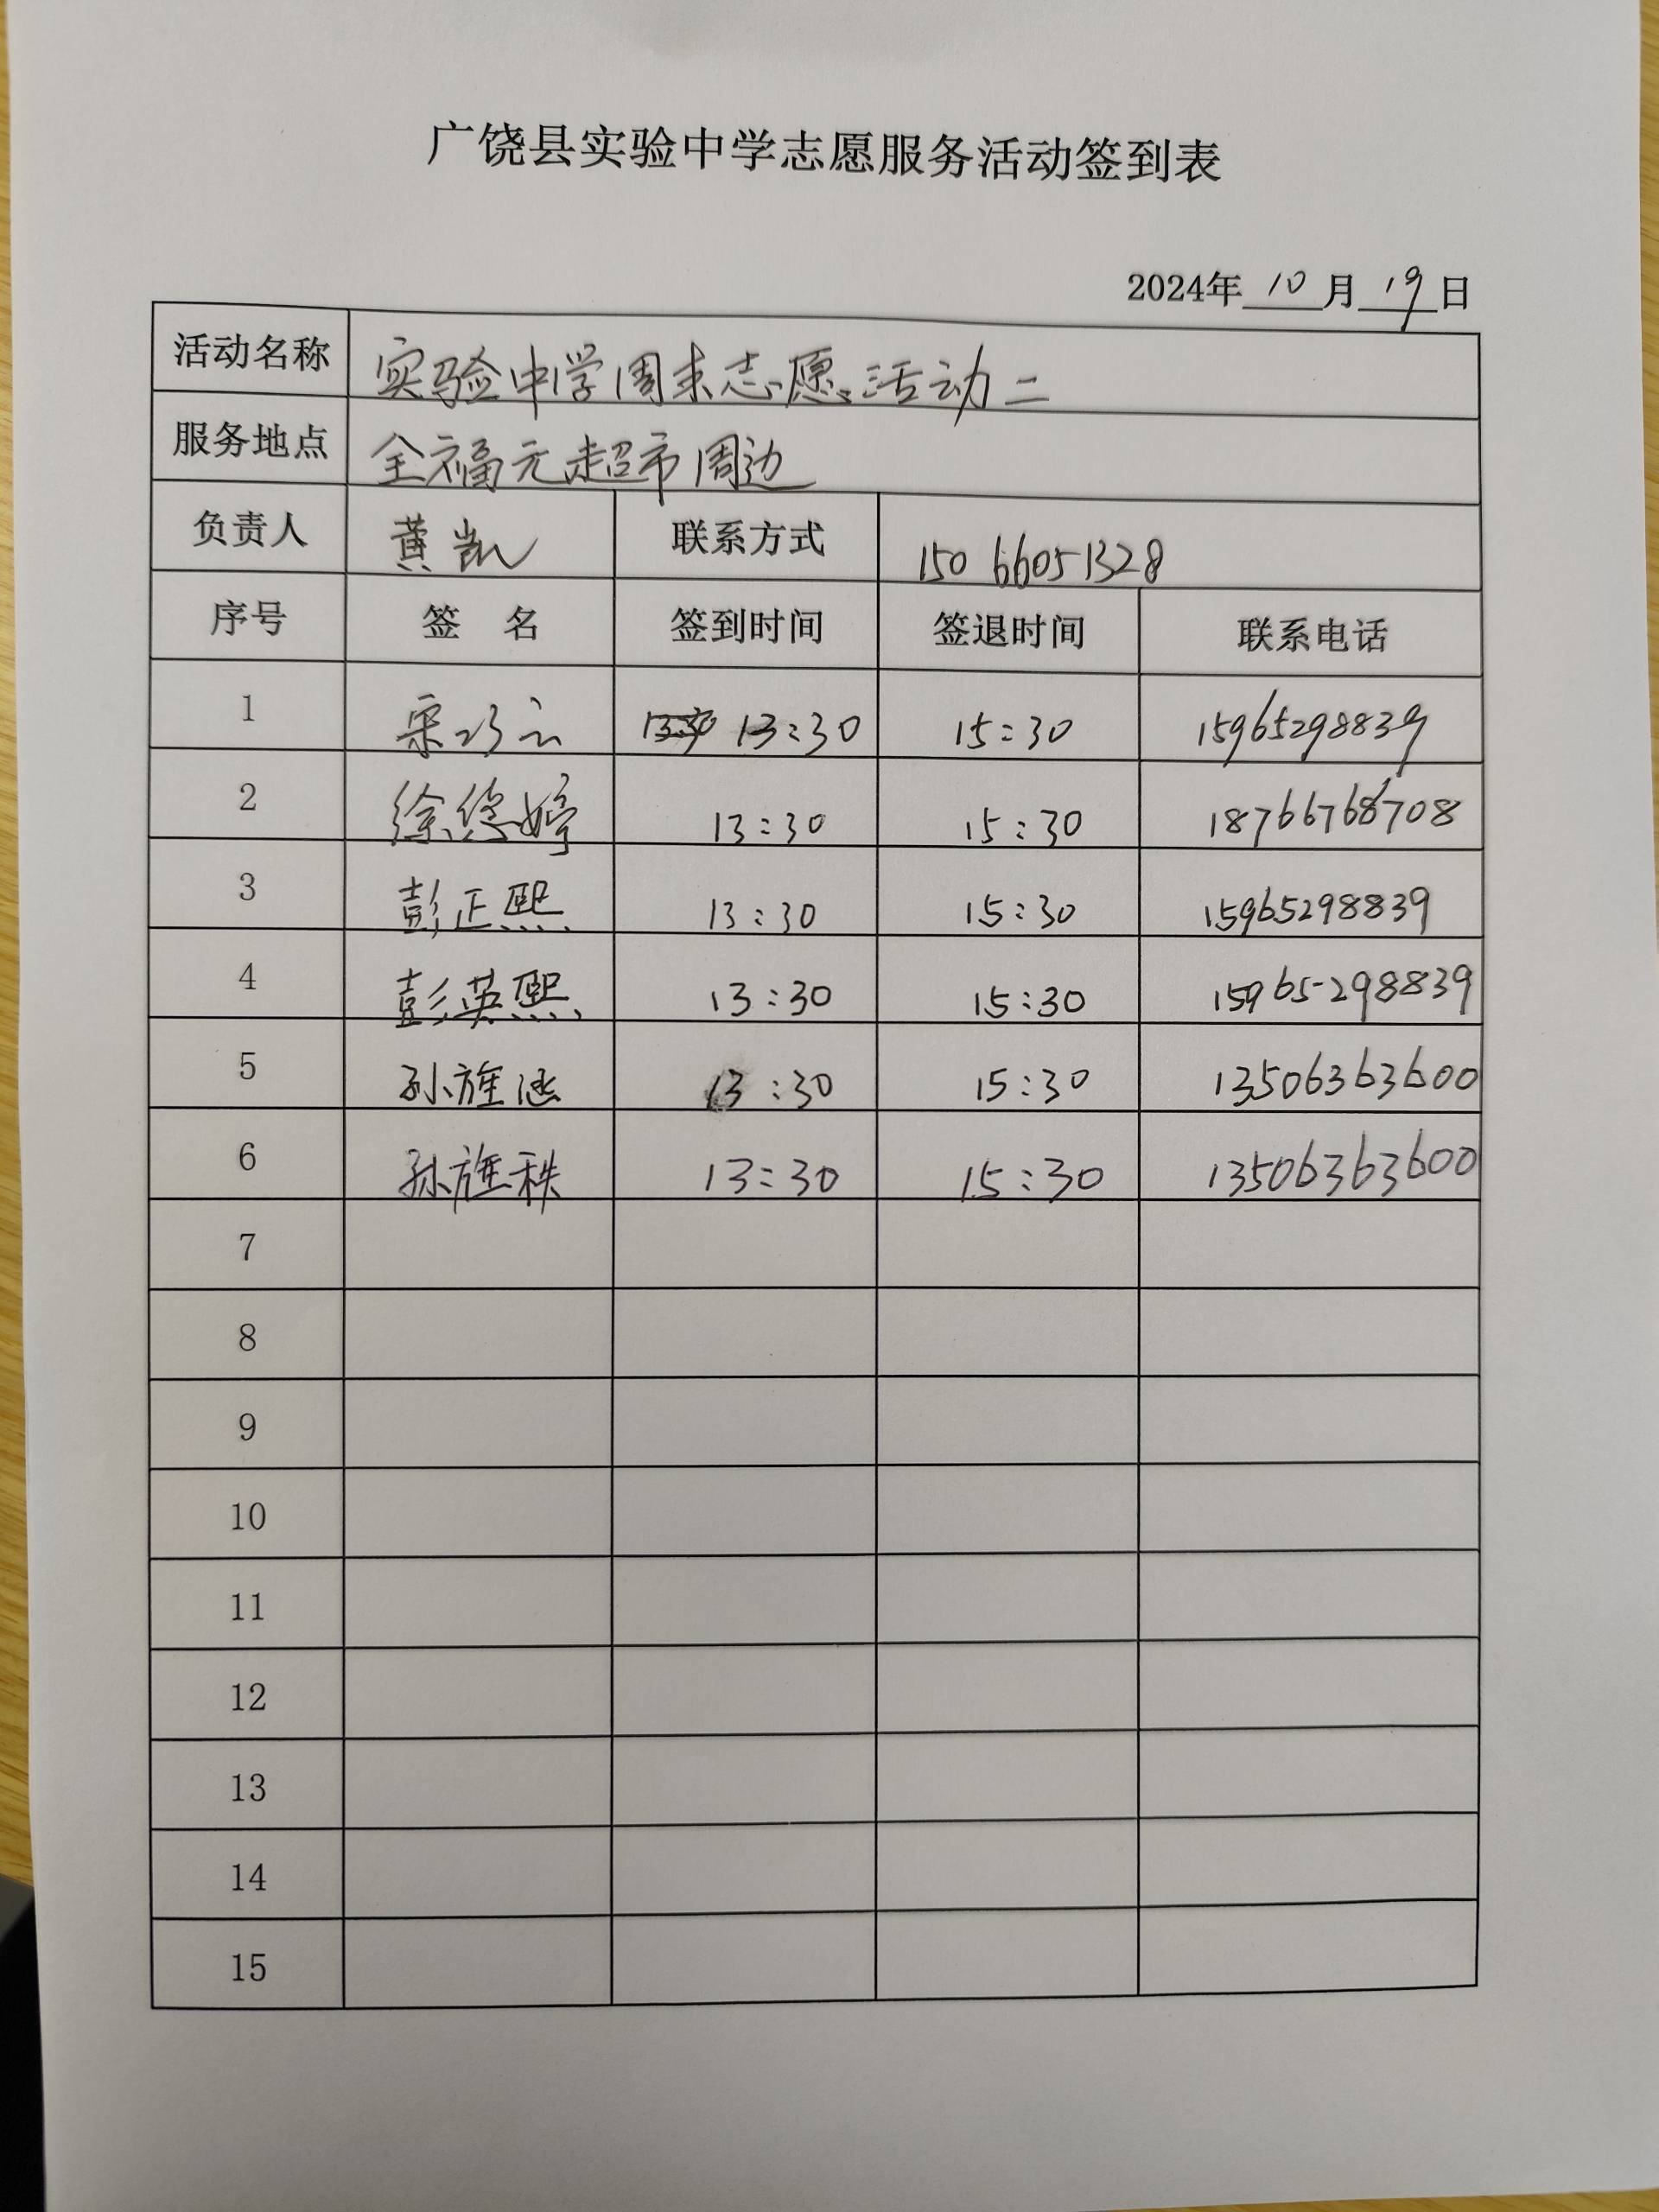 广饶县实验中学志愿服务活动签到表
2024年 10 月 19 日
活动名称 实验中学周末志愿活动二
服务地点 全福元超市周边
负责人 黄凯 联系方式 15066051328
序号 签 名 签到时间 签退时间 联系电话
1 宋巧云 13:30 15:30 15965298839
2 徐悠婷 13:30 15:30 18766768708
3 彭正熙 13:30 15:30 15965298839
4 彭英熙 13:30 15:30 15965298839
5 孙旌涵 13:30 15:30 13506363600
6 孙旌秩 13:30 15:30 13506363600
7
8
9
10
11
12
13
14
15